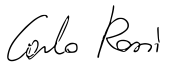 Carlo Rossi